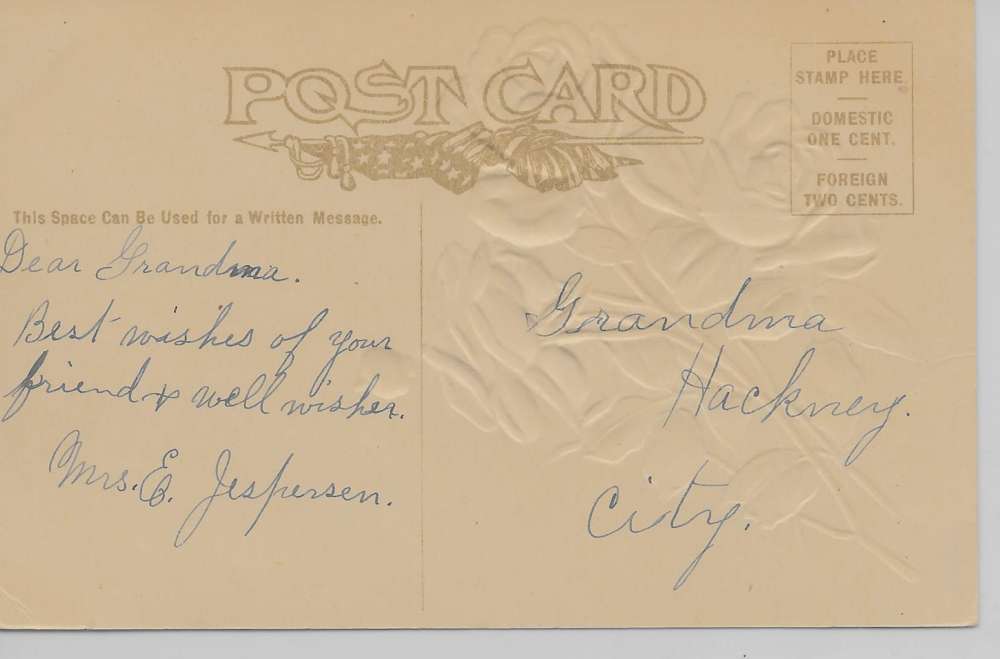 POST CARD
PLACE
STAMP HERE.
DOMESTIC
ONE CENT.
FOREIGN
TWO CENTS.
This Space Can Be Used for a Written Message.
Dear Grandma.
Best wishes of your
friend & well wisher.
Mrs. E. Jespersen.
Grandma
Hackney.
City.